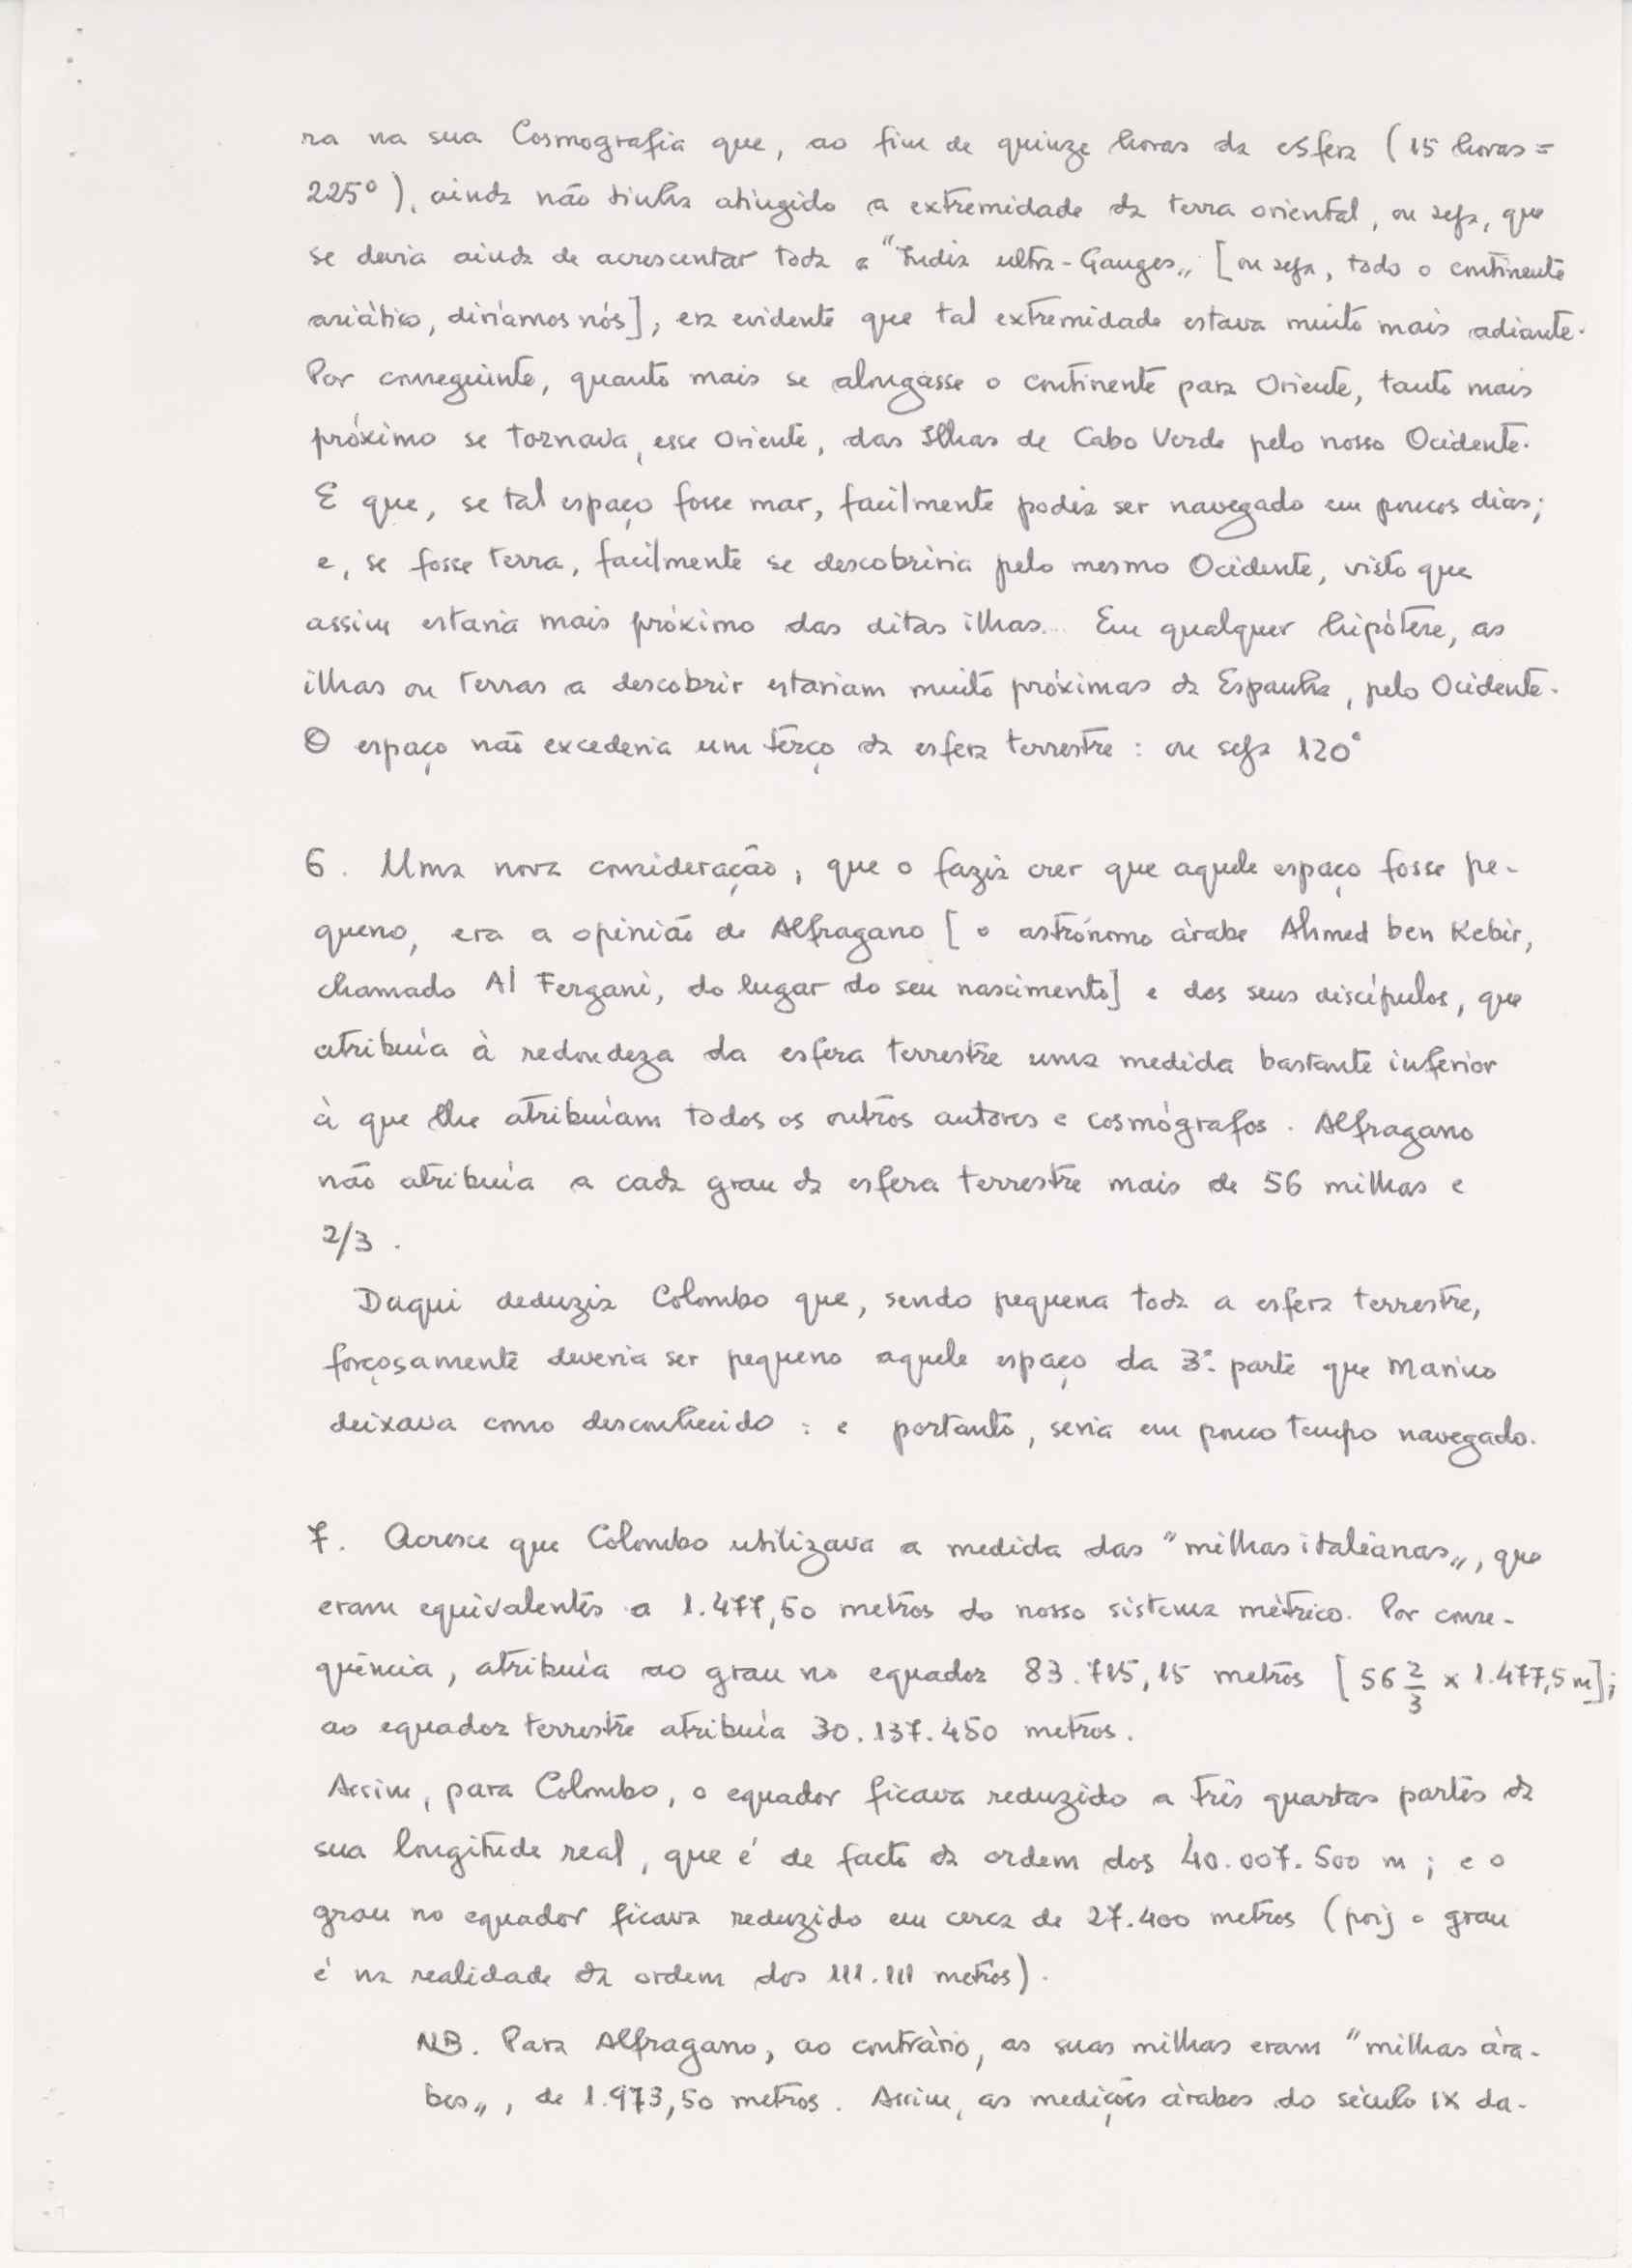 ra na sua Cosmografia que, ao fim de quinze horas da esfera (15 horas =
225º), ainda não tinha atingido a extremidade da terra oriental, ou seja, que
se devia ainda de acrescentar toda a "Índia ultra-Ganges„ [ou seja, todo o continente
asiático, diríamos nós], era evidente que tal extremidade estava muito mais adiante.
Por conseguinte, quanto mais se alongasse o continente para Oriente, tanto mais
próximo se tornava, esse Oriente, das Ilhas de Cabo Verde pelo nosso Ocidente.
E que, se tal espaço fosse mar, facilmente podia ser navegado em poucos dias;
e, se fosse terra, facilmente se descobriria pelo mesmo Ocidente, visto que
assim estaria mais próximo das ditas ilhas... Em qualquer hipótese, as
ilhas ou terras a descobrir estariam muito próximas da Espanha, pelo Ocidente.
O espaço não excederia um têrço da esfera terrestre: ou seja 120º
6. Uma nova consideração, que o fazia crer que aquele espaço fosse pe-
queno, era a opinião de Alfragano [o astrónomo árabe Ahmed ben Kebir,
chamado Al Fergani, do lugar do seu nascimento] e dos seus discípulos, que
atribuía à redondeza da esfera terrestre uma medida bastante inferior
à que lhe atribuíam todos os outros autores e cosmógrafos. Alfragano
não atribuía a cada grau da esfera terrestre mais de 56 milhas e
2/3.
Daqui deduzia Colombo que, sendo pequena toda a esfera terrestre,
forçosamente deveria ser pequeno aquele espaço da 3ª parte que Marino
deixava como desconhecido: e portanto, seria em pouco tempo navegado.
7. Acresce que Colombo utilizava a medida das "milhas italianas„, que
eram equivalentes a 1.477,50 metros do nosso sistema métrico. Por conse-
quência, atribuía ao grau no equador 83.715,15 metros [56 2/3 x 1.477,5 m];
ao equador terrestre atribuía 30.137.450 metros.
Assim, para Colombo, o equador ficava reduzido a três quartas partes da
sua longitude real, que é de facto da ordem dos 40.007.500 m; e o
grau no equador ficava reduzido em cerca de 27.400 metros (pois o grau
é na realidade da ordem dos 111.111 metros).
NB. Para Alfragano, ao contrário, as suas milhas eram "milhas ára-
bes„, de 1.973,50 metros. Assim, as medições árabes do século IX da-